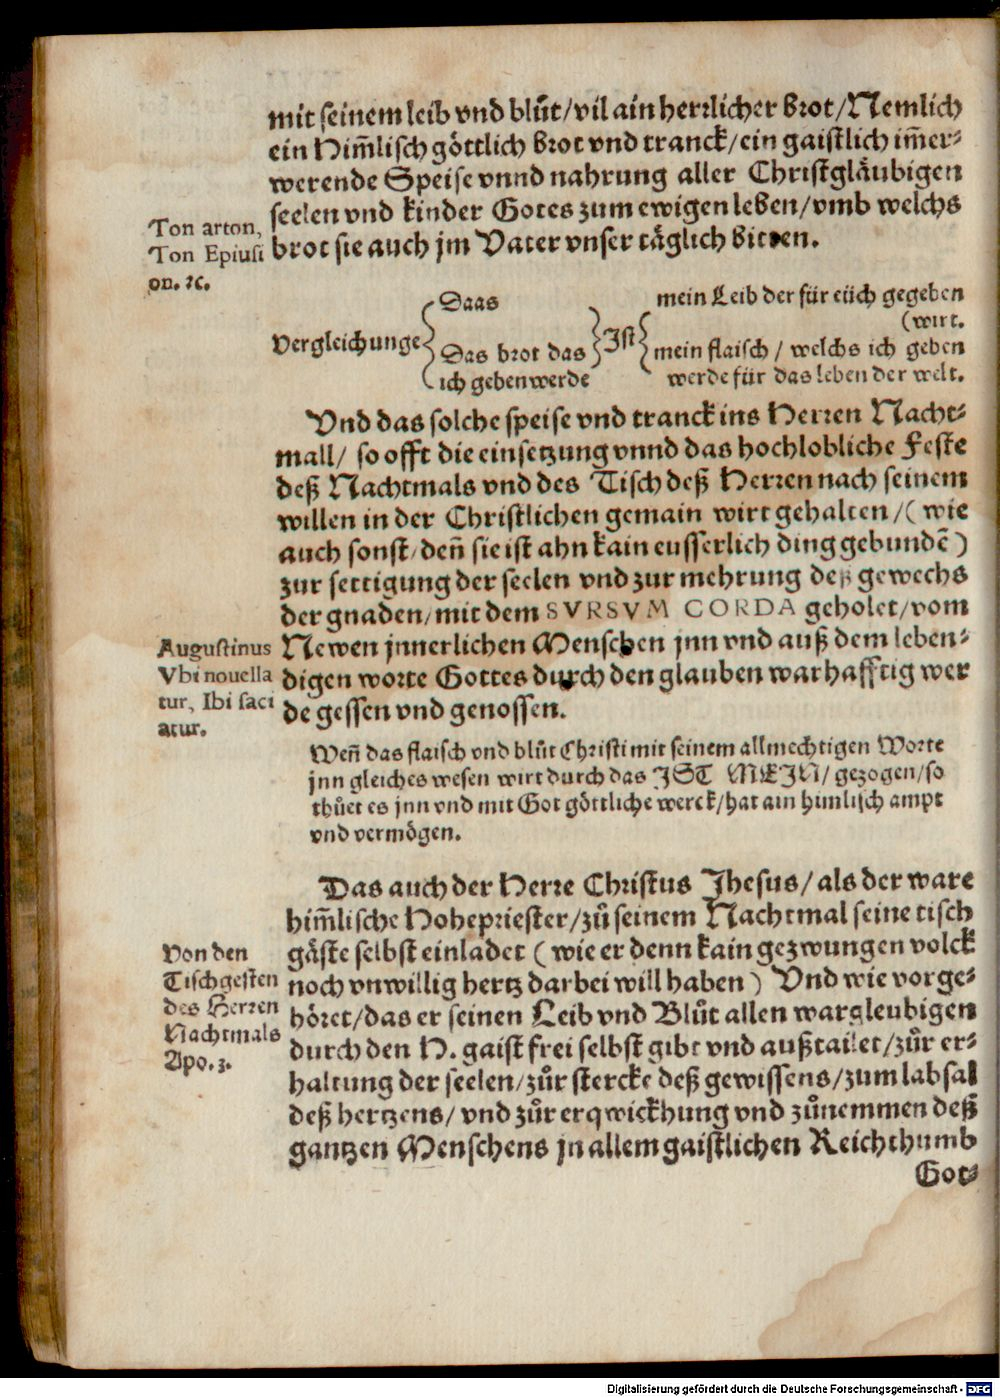 mit seinem leib vnd blůt/vil ain herrlicher brot/Nemlich
ein Him̃lisch göttlich brot vnd tranck/ein gaistlich im̃er-
werende Speise vnnd nahrung aller Christgläubigen
seelen vnd kinder Gotes zum ewigen leben/vmb welchs
brot sie auch jm Vater vnser täglich bitten.
Ton arton,
Ton Epiusi
on. ꝛc.
Vergleichunge
Daas
Das brot das
ich geben werde
Ist
mein Leib der für eüch gegeben
(wirt.
mein flaisch / welchs ich geben
werde für das leben der welt.
Vnd das solche speise vnd tranck ins Herren Nacht-
mall/ so offt die einsetzung vnnd das hochlobliche Feste
deß Nachtmals vnd des Tisch deß Herren nach seinem
willen in der Christlichen gemain wirt gehalten/( wie
auch sonst/deñ sie ist ahn kain eusserlich ding gebundẽ )
zur settigung der seelen vnd zur mehrung deß gewechs
der gnaden/mit dem SVRSVM CORDA geholet/vom
Newen jnnerlichen Menschen jnn vnd auß dem leben-
digen worte Gottes durch den glauben warhafftig wer
de gessen vnd genossen.
Augustinus
Vbi nouella
tur, Ibi saci
atur.
Weñ das flaisch vnd blůt Christi mit seinem allmechtigen Worte
jnn gleiches wesen wirt durch das IST MEIN/ gezogen/so
thůet es jnn vnd mit Got göttliche werck/hat ain himlisch ampt
vnd vermögen.
Das auch der Herre Christus Jhesus/als der ware
him̃lische Hohepriester/zů seinem Nachtmal seine tisch
gäste selbst einladet ( wie er denn kain gezwungen volck
noch vnwillig hertz darbei will haben ) Vnd wie vorge-
höret/das er seinen Leib vnd Blůt allen wargleubigen
durch den H. gaist frei selbst gibt vnd außtailet/zůr er-
haltung der seelen/zůr stercke deß gewissens/zum labsal
deß hertzens/ vnd zůr erqwickhung vnd zůnemmen deß
gantzen Menschens jn allem gaistlichen Reichthumb
Von den
Tischgesten
des Herren
Nachtmals
Apo. 3.
Got-
Digitalisierung gefördert durch die Deutsche Forschungsgemeinschaft - DFG